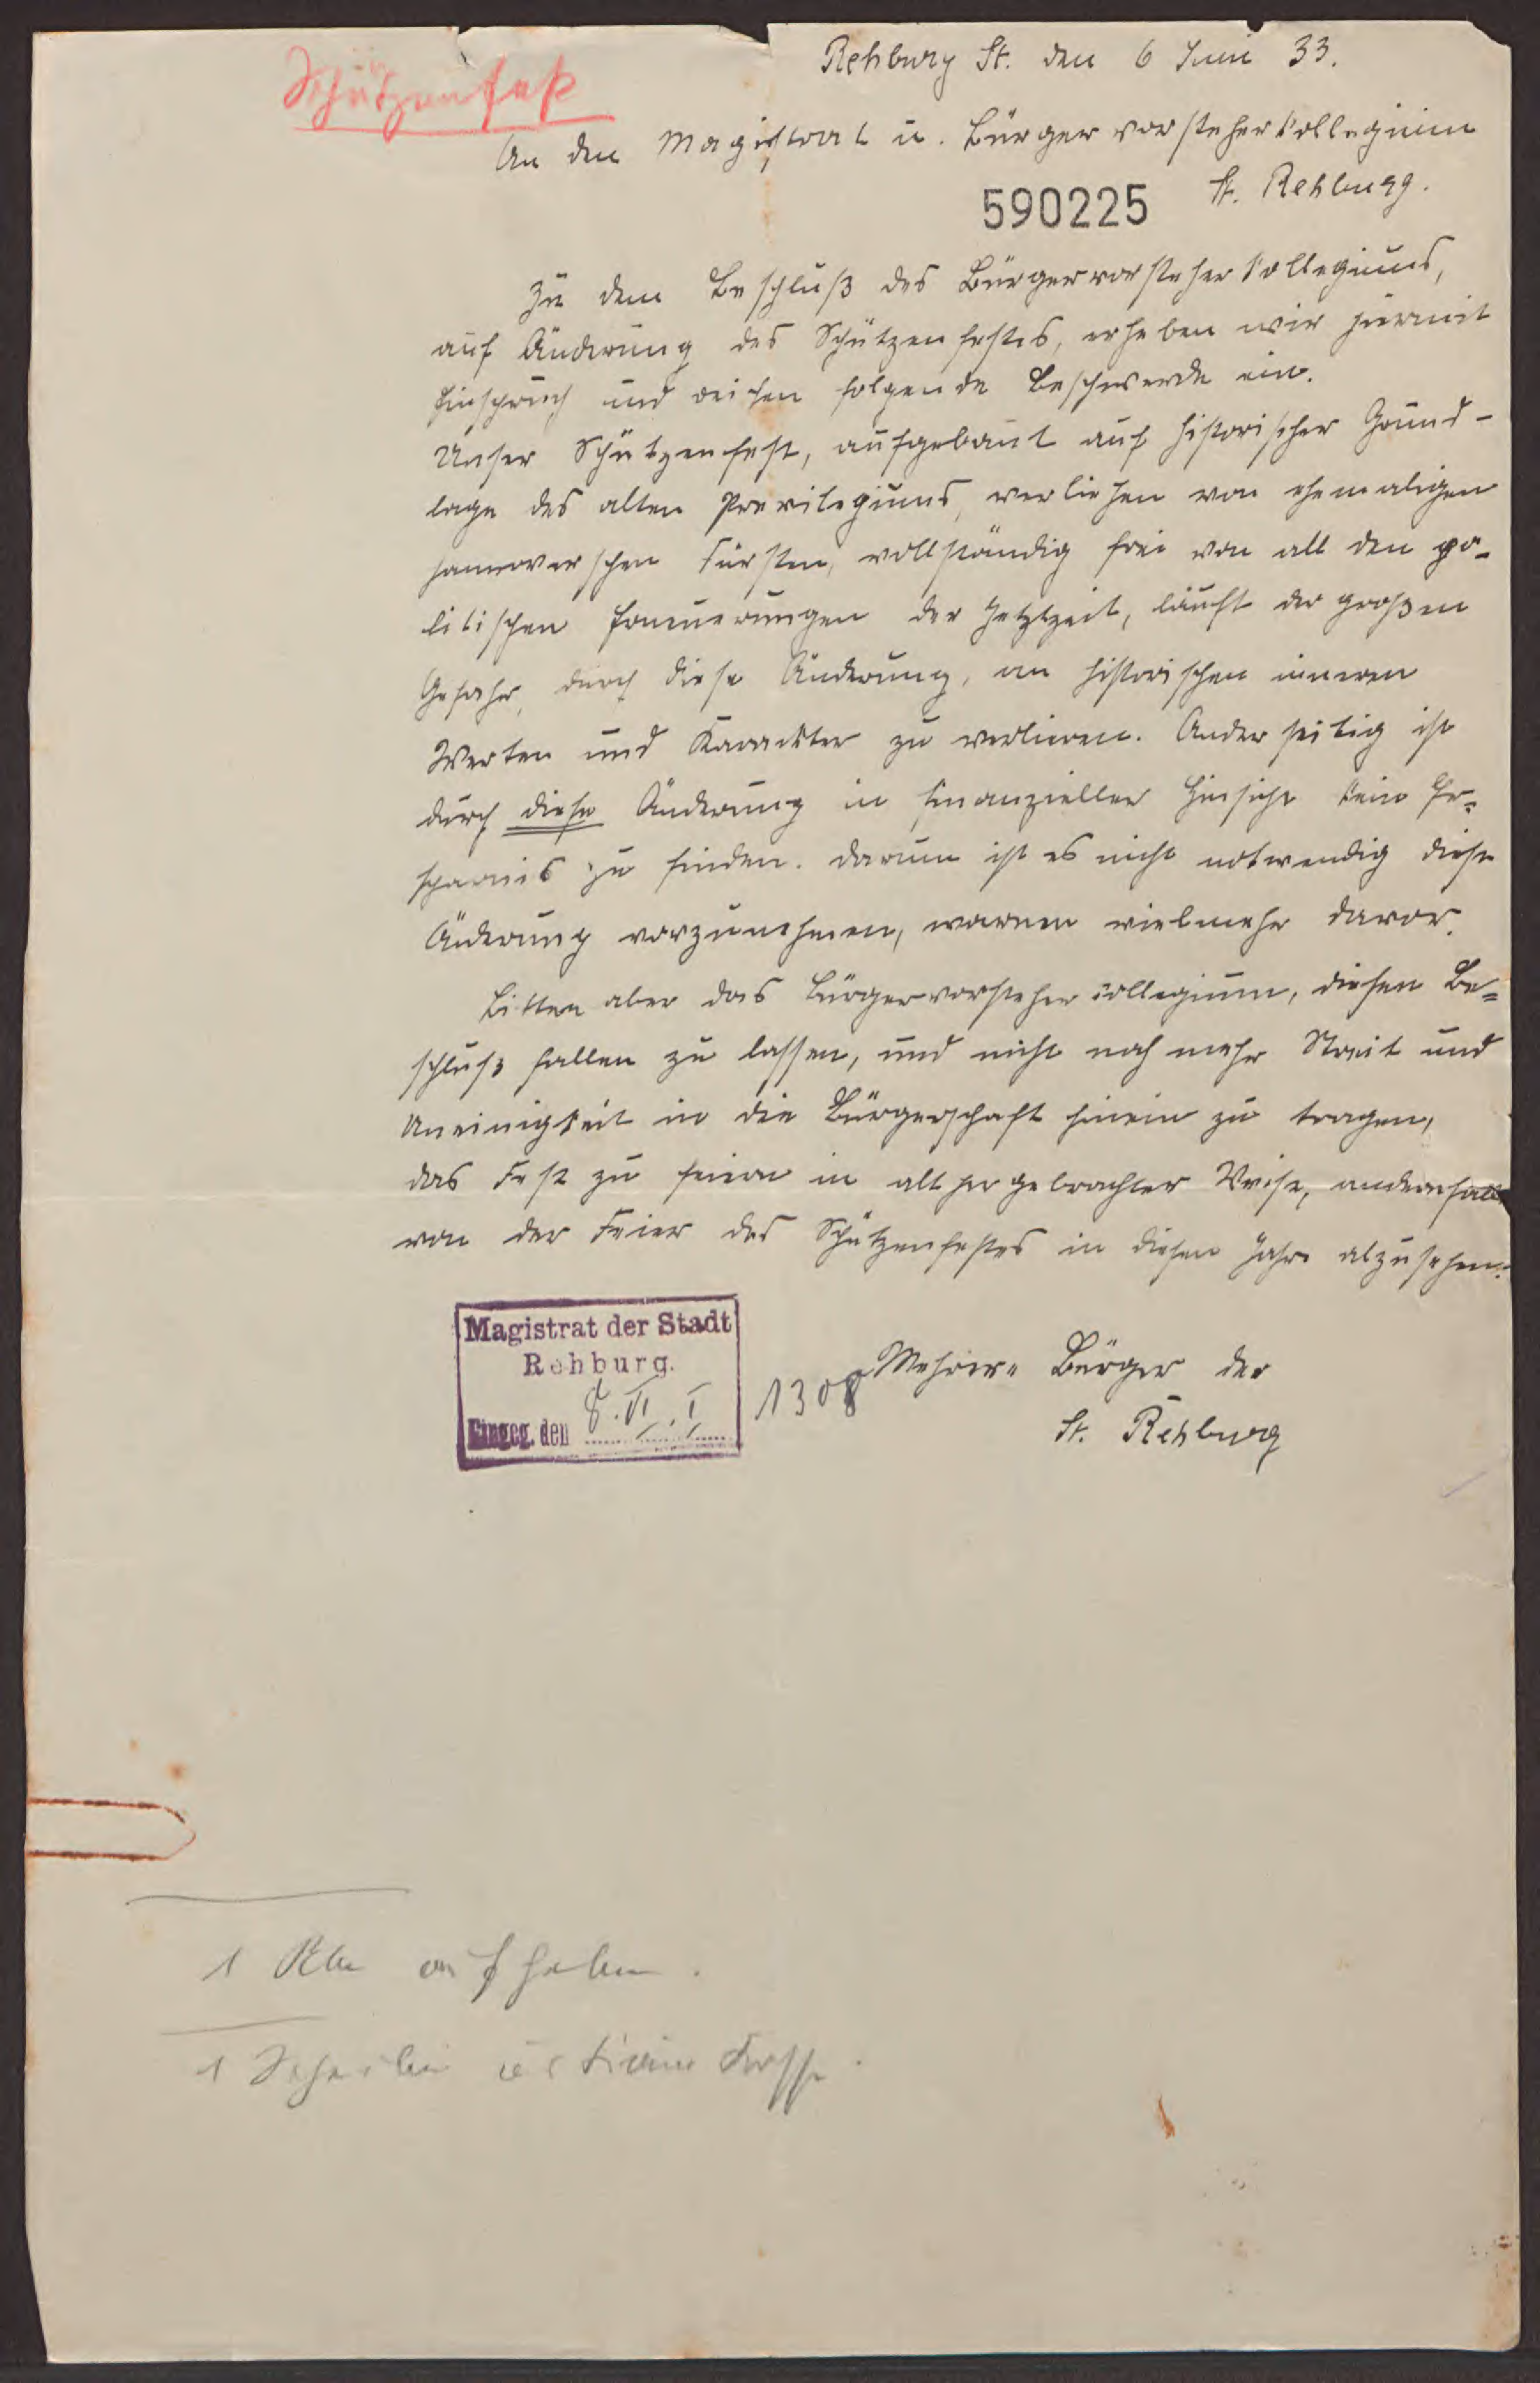 Schützenfest
Rehburg St. den 6 Juni 33.
An den Magistrat u. Bürgervorsteherkollegium
St. Rehburg.
590225
Zu dem Beschluß des Bürgervorsteherkollegiums,
auf Änderung des Schützenfestes, erheben wir hiermit
Einspruch und reichen folgende Beschwerde ein.
Unser Schützenfest, aufgebaut auf historischer Grund-
lage des alten Previlegiums, verliehen von ehemaligen
hannoverschen Fürsten, vollständig frei von all den po-
litischen Erneuerungen der Jetztzeit, läuft der großen
Gefahr, durch diese Änderung, an historischen inneren
Werten und Karackter zu verlieren. Anderseitig ist
durch diese Änderung in finanzieller Hinsicht kein Er=
sparnis zu finden. Darum ist es nicht notwendig diese
Änderung vorzunehmen, warnen vielmehr davor.
Bitten aber das Bürgervorsteherkollegium, diesen Be=
schluß fallen zu lassen, und nicht noch mehr Streit und
Uneinigkeit in die Bürgerschaft hinein zu tragen,
das Fest zu feiern in althergebrachter Weise, andernfalls
von der Feier des Schützenfestes in diesen Jahre abzusehen.
Mehrere Bürger der
St. Rehburg
Magistrat der Stadt
Rehburg.
Eingeg. den 8. VI. I
1308
1
aufheben.
1